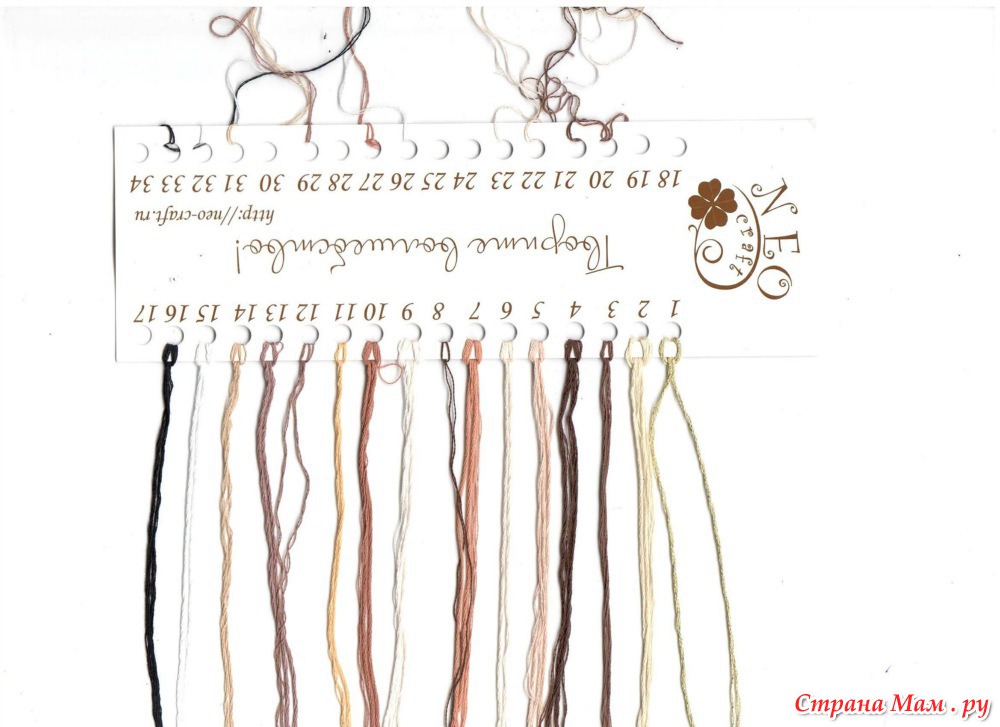 1 2 3 4 5 6 7 8 9 10 11 12 13 14 15 16 17
NEO
craft
Творите волшебство!
http://neo-craft.ru
18 19 20 21 22 23 24 25 26 27 28 29 30 31 32 33 34
Страна Мам . ру